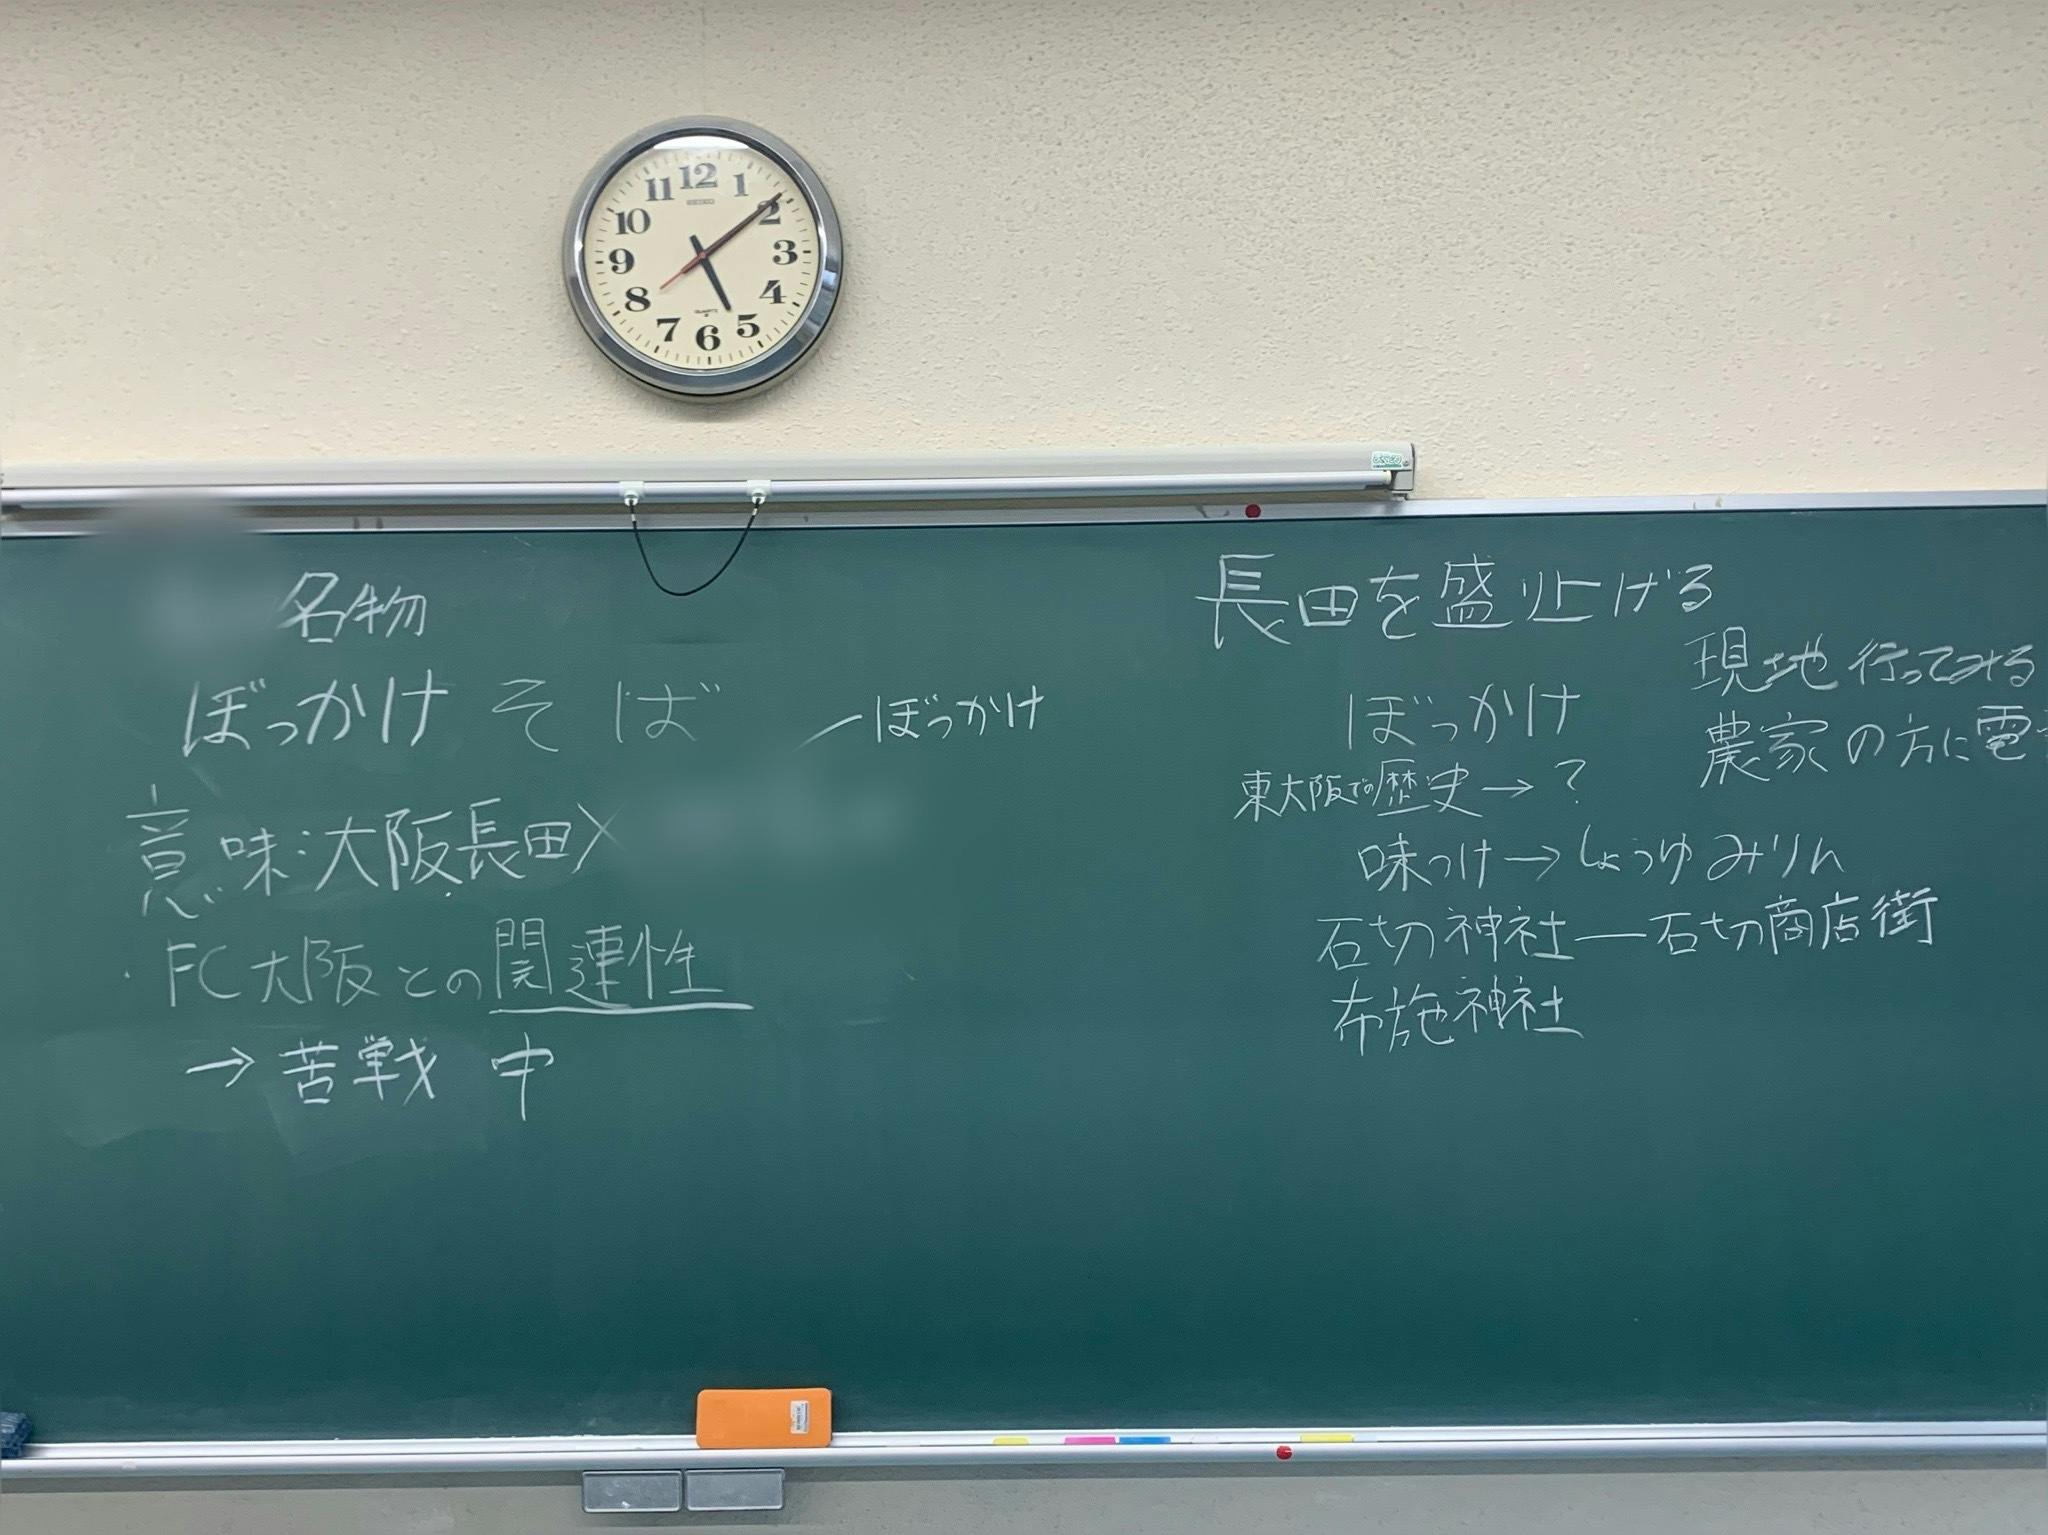 12
1
2
3
4
5
6
7
8
9
10
11
SEIKO
QUARTZ
名物
ぼっかけそば
ぼっかけ
意味:大阪長田×
・FC大阪との関連性
→苦戦中
長田を盛り上げる
ぼっかけ
東大阪での歴史→?
味つけ→しょうゆみりん
石切神社―石切商店街
布施神社
現地行ってみる
農家の方に電